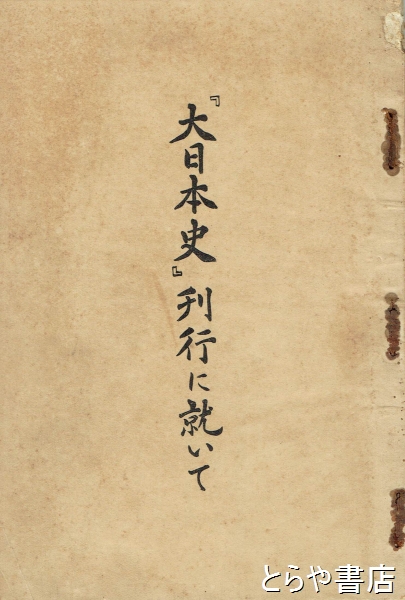 『大日本史』刊行に就いて
とらや書店